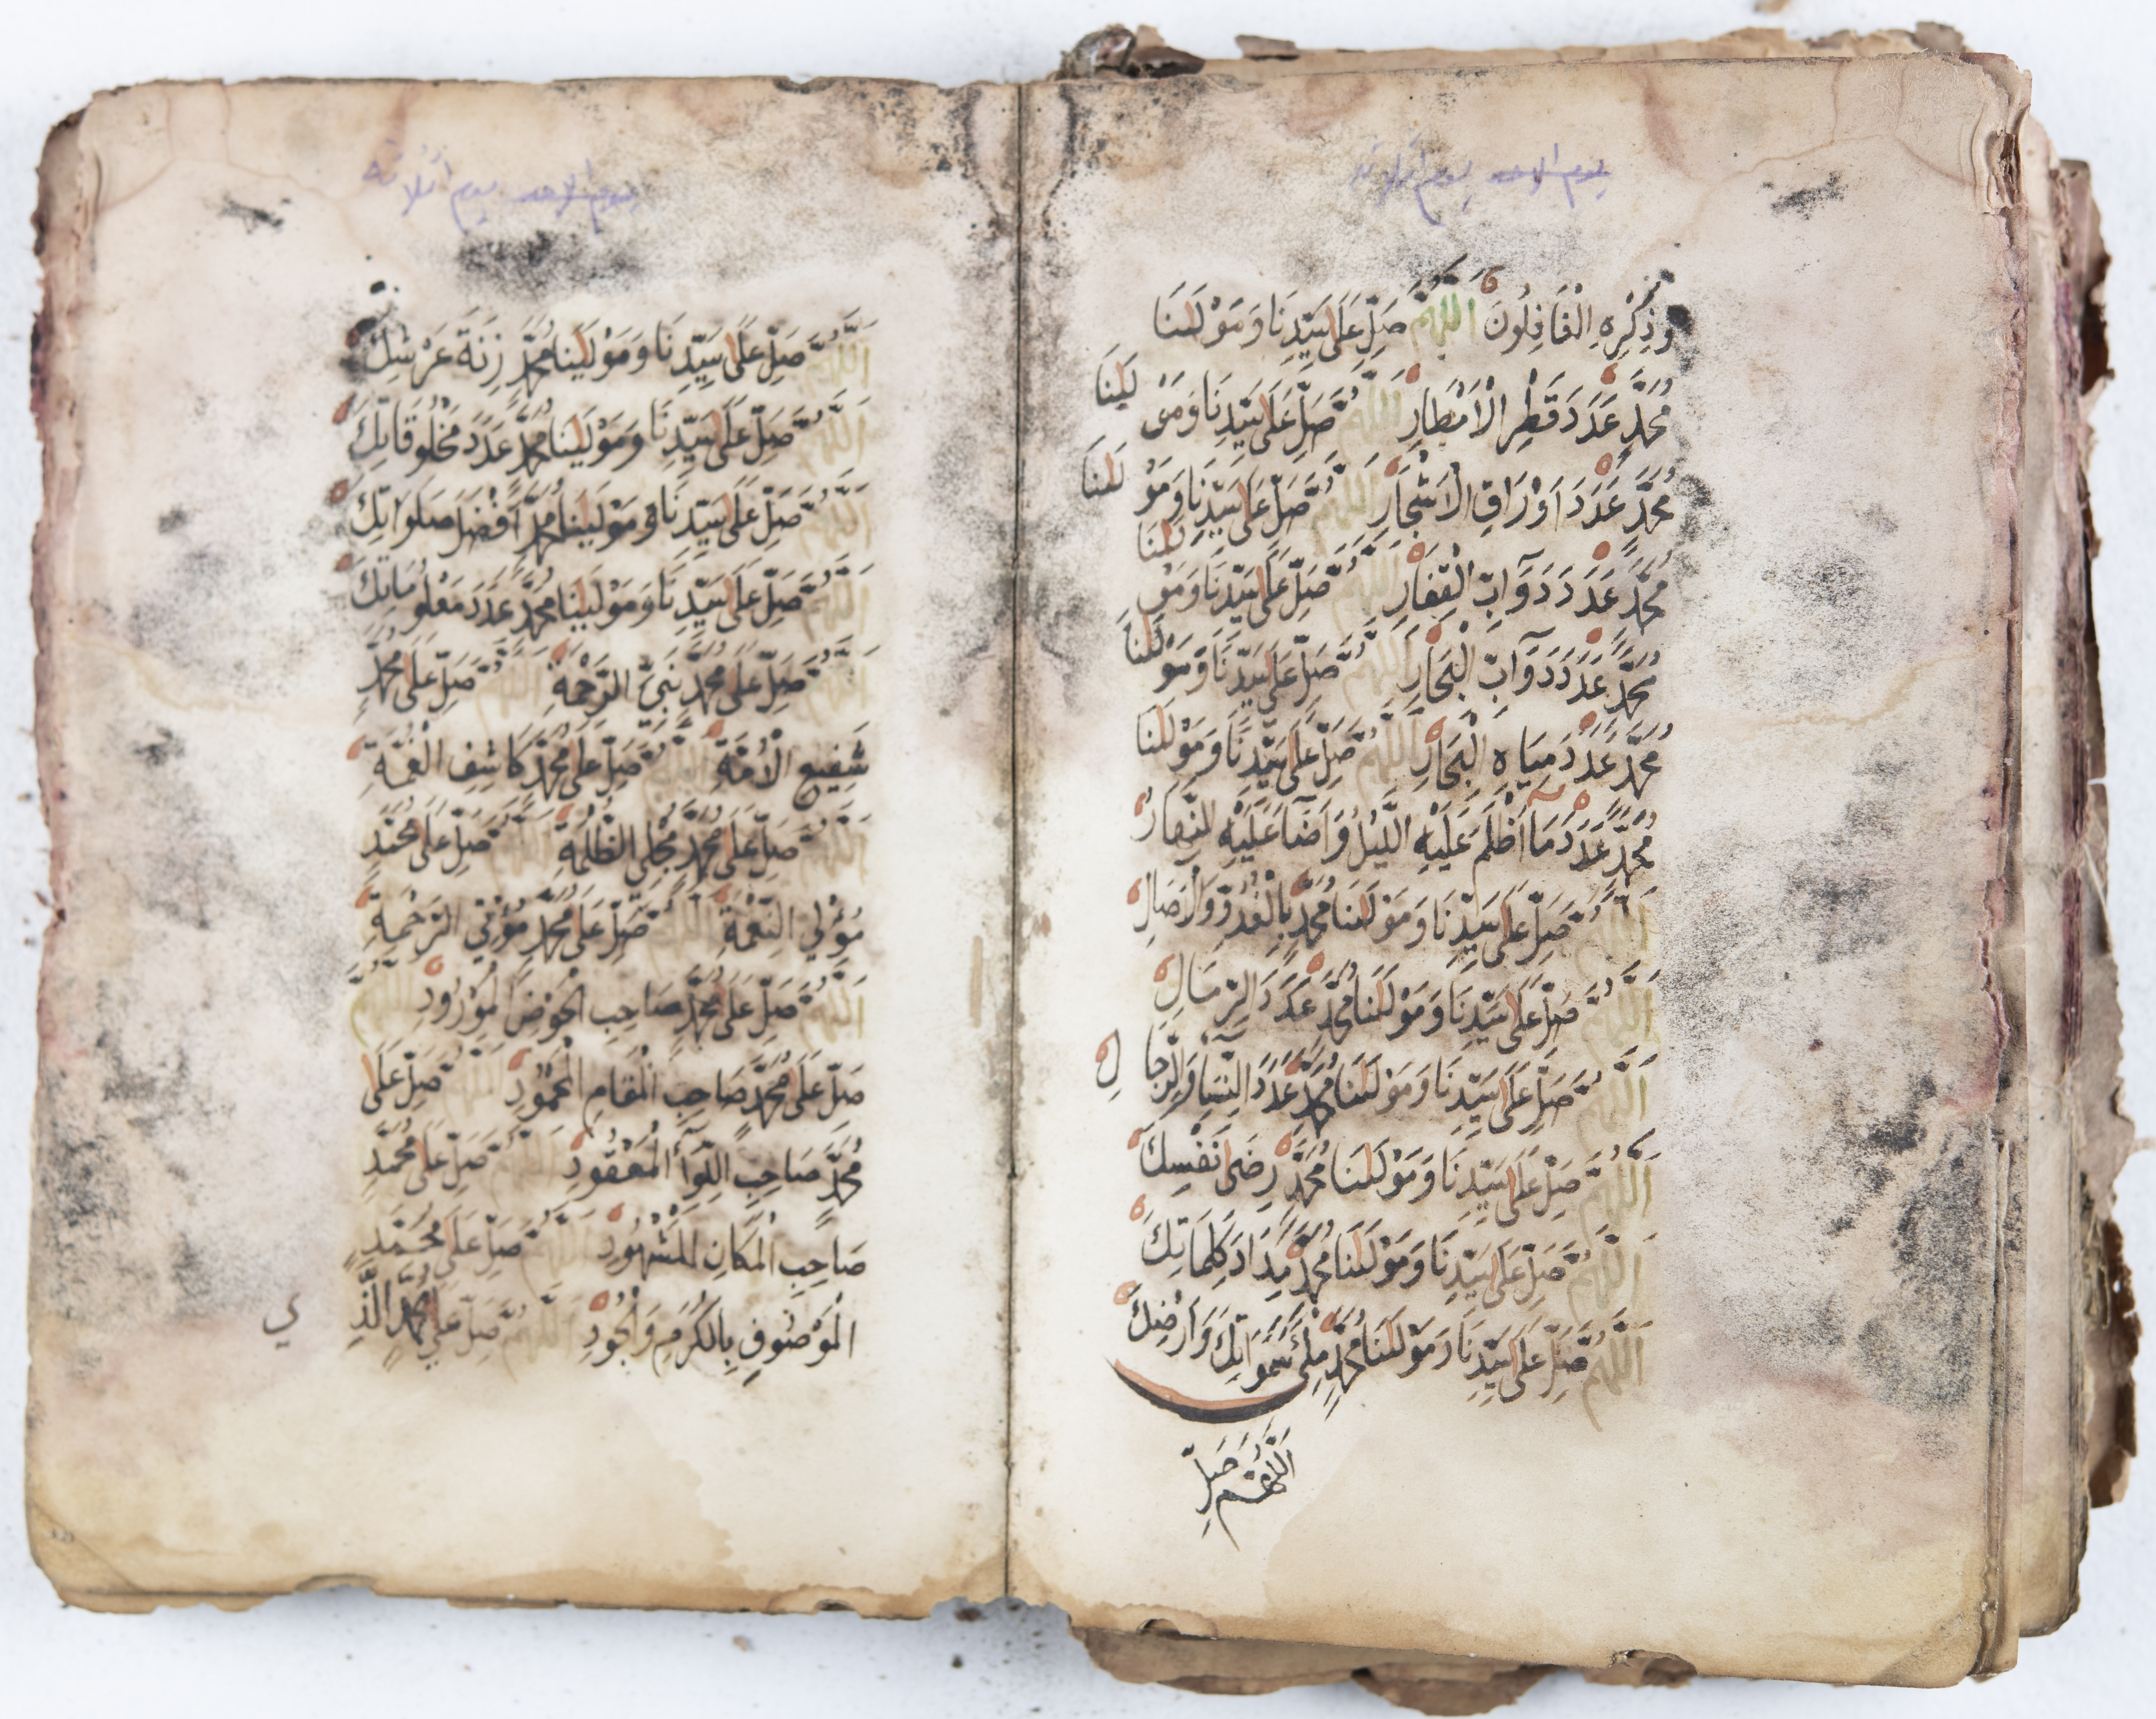 يوم الاحد يوم اثلاثة
وَذِكْرِهِ الْغَافِلُونَ اَللّٰهُمَّ صَلِّ عَلَى سَيِّدِنَا وَمَوْلَانَا
مُحَمَّدٍ عَدَدَ قَطْرِ الْاَمْطَارِ اَللّٰهُمَّ صَلِّ عَلَى سَيِّدِنَا وَمَوْ لَانَا
مُحَمَّدٍ عَدَدَ اَوْرَاقِ الْاَشْجَارِ اَللّٰهُمَّ صَلِّ عَلَى سَيِّدِنَا وَمَوْ لَانَا
مُحَمَّدٍ عَدَدَ دَوَآبِّ الْقِفَارِ اَللّٰهُمَّ صَلِّ عَلَى سَيِّدِنَا وَمَوْ لَانَا
مُحَمَّدٍ عَدَدَ دَوَآبِّ الْبِحَارِ اَللّٰهُمَّ صَلِّ عَلَى سَيِّدِنَا وَمَوْ لَانَا
مُحَمَّدٍ عَدَدَ مِيَاهِ الْبِحَارِ اَللّٰهُمَّ صَلِّ عَلَى سَيِّدِنَا وَمَوْلَانَا
مُحَمَّدٍ عَدَدَ مَا اَظْلَمَ عَلَيْهِ الَّيْلُ وَاَضَآ عَلَيْهِ النَّهَارُ
اَللّٰهُمَّ صَلِّ عَلَى سَيِّدِنَا وَمَوْلَانَا مُحَمَّدٍ بِالْغُدُوِّ وَالْاَصَالِ
اَللّٰهُمَّ صَلِّ عَلَى سَيِّدِنَا وَمَوْلَانَا مُحَمَّدٍ عَدَدَ الرِّمَالِ
اَللّٰهُمَّ صَلِّ عَلَى سَيِّدِنَا وَمَوْلَانَا مُحَمَّدٍ عَدَدَ النِّسَآ وَالرِّجَا لِ
اَللّٰهُمَّ صَلِّ عَلَى سَيِّدِنَا وَمَوْلَانَا مُحَمَّدٍ رِضَى نَفْسِكَ
اَللّٰهُمَّ صَلِّ عَلَى سَيِّدِنَا وَمَوْلَانَا مُحَمَّدٍ مِدَادَ كَلِمَاتِكَ
اَللّٰهُمَّ صَلِّ عَلَى سَيِّدِنَا وَمَوْلَانَا مُحَمَّدٍ مِلْئَ سَمٰوَاتِكَ وَاَرْضِكَ
اَللّٰهُمَّ صَلِّ
يوم الاحد يوم اثلاثة
اَللّٰهُمَّ صَلِّ عَلَى سَيِّدِنَا وَمَوْلَيْنَا مُحَمَّدٍ زِنَةَ عَرْشِكَ
اَللّٰهُمَّ صَلِّ عَلَى سَيِّدِنَا وَمَوْلَيْنَا مُحَمَّدٍ عَدَدَ مَخْلُوقَاتِكَ
اَللّٰهُمَّ صَلِّ عَلَى سَيِّدِنَا وَمَوْلَيْنَا مُحَمَّدٍ اَفْضَلَ صَلَوَاتِكَ
اَللّٰهُمَّ صَلِّ عَلَى سَيِّدِنَا وَمَوْلَيْنَا مُحَمَّدٍ عَدَدَ مَعْلُومَاتِكَ
اَللّٰهُمَّ صَلِّ عَلَى مُحَمَّدٍ نَبِيِّ الرَّحْمَةِ اَللّٰهُمَّ صَلِّ عَلَى مُحَمَّدٍ
شَفِيعِ الْاُمَّةِ اَللّٰهُمَّ صَلِّ عَلَى مُحَمَّدٍ كَاشِفِ الْغُمَّةِ
اَللّٰهُمَّ صَلِّ عَلَى مُحَمَّدٍ مُجْلِي الظُّلْمَةِ اَللّٰهُمَّ صَلِّ عَلَى مُحَمَّدٍ
مُؤْلِي النِّعْمَةِ اَللّٰهُمَّ صَلِّ عَلَى مُحَمَّدٍ مُؤْتِي الرَّحْمَةِ
اَللّٰهُمَّ صَلِّ عَلَى مُحَمَّدٍ صَاحِبِ الْحَوْضِ الْمَوْرُودِ اَللّٰهُمَّ
صَلِّ عَلَى مُحَمَّدٍ صَاحِبِ الْمَقَامِ الْمَحْمُودِ اَللّٰهُمَّ صَلِّ عَلَى
مُحَمَّدٍ صَاحِبِ اللِّوَآ الْمَعْقُودِ اَللّٰهُمَّ صَلِّ عَلَى مُحَمَّدٍ
صَاحِبِ الْمَكَانِ الْمَشْهُودِ اَللّٰهُمَّ صَلِّ عَلَى مُحَمَّدٍ
الْمَوْصُوفِ بِالْكَرَمِ وَالْجُودِ اَللّٰهُمَّ صَلِّ عَلَى مُحَمَّدٍ الَّذِ ي